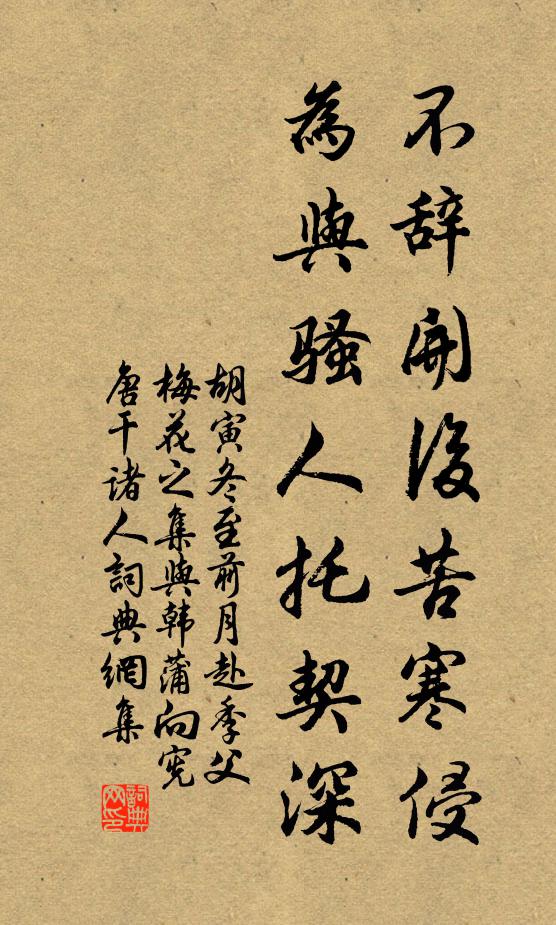 不辞開後苦寒侵
為與騷人托契深
胡寅冬至前月赴季父
梅花之集與韩蒲向宪
唐干诸人詞典網集
詞典网印